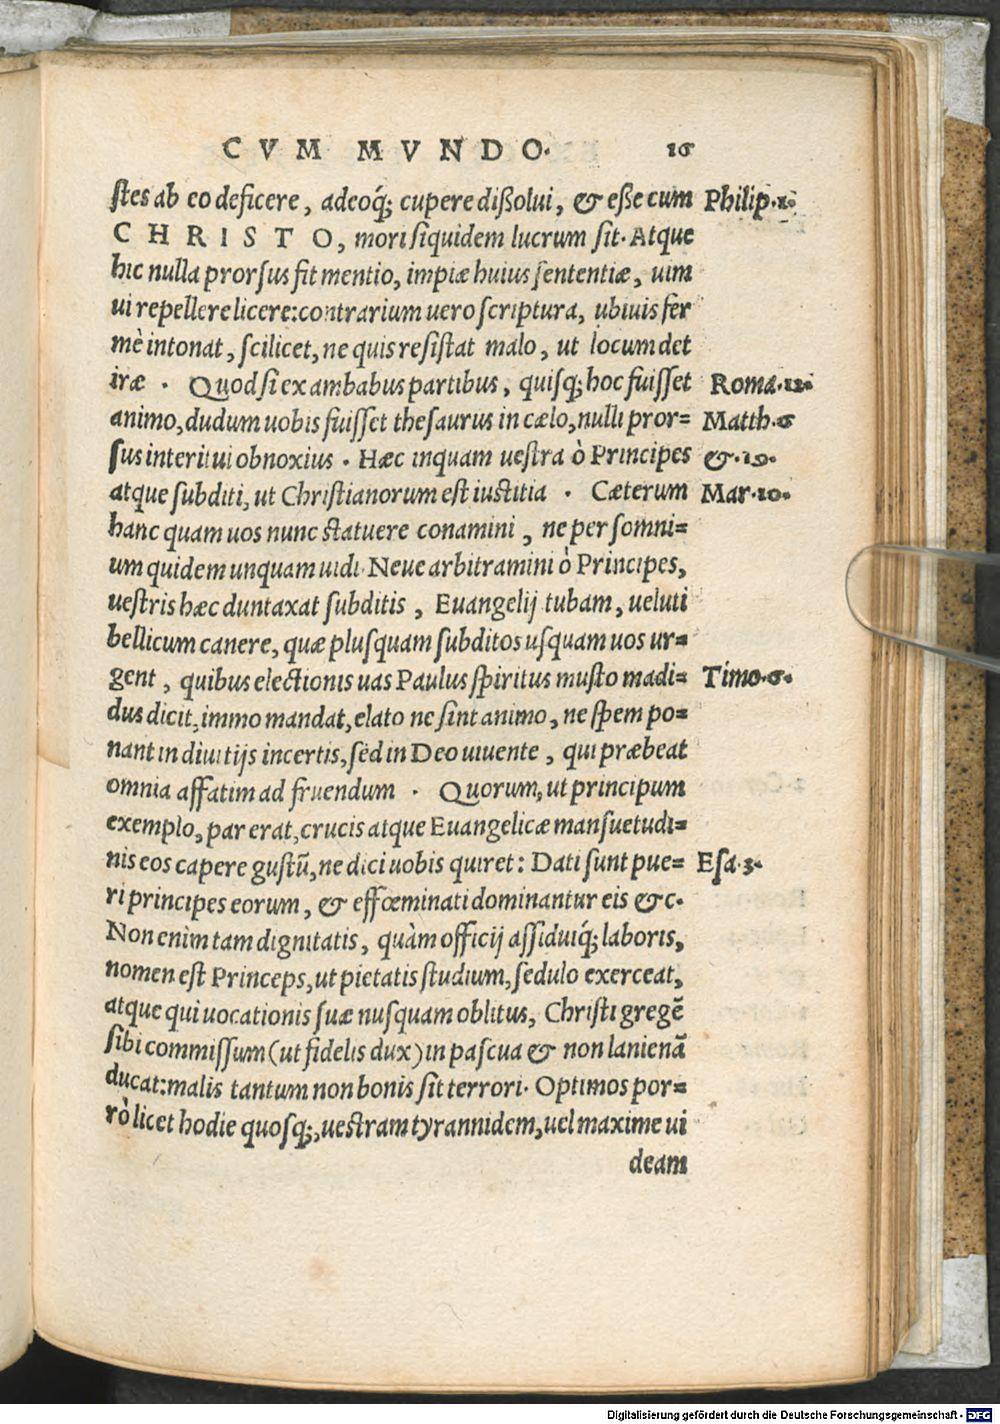 CVM MVNDO. 16
stes ab eo deficere, adeoq́; cupere dißolui, & eße cum Philip.1.
CHRISTO, mori siquidem lucrum sit. Atque
hic nulla prorsus fit mentio, impiæ huius sententiæ, uim
ui repellere licere: contrarium uero scriptura, ubiuis fer
mè intonat, scilicet, ne quis resistat malo, ut locum det
iræ . Quod si ex ambabus partibus, quisq; hoc fuisset Roma.12.
animo, dudum uobis fuisset thesaurus in cælo, nulli pror= Matth.6
sus interitui obnoxius . Hæc inquam uestra ò Principes &.19.
atque subditi, ut Christianorum est iustitia . Cæterum Mar.10.
hanc quam uos nunc statuere conamini, ne per somni=
um quidem unquam uidi. Neue arbitramini ò Principes,
uestris hæc duntaxat subditis, Euangelij tubam, ueluti
bellicum canere, quæ plusquam subditos usquam uos ur=
gent, quibus electionis uas Paulus spiritus musto madi= Timo.6.
dus dicit, immo mandat, elato ne sint animo, ne spem po=
nant in diuitijs incertis, sed in Deo uiuente, qui præbeat
omnia affatim ad fruendum . Quorum, ut principum
exemplo, par erat, crucis atque Euangelicæ mansuetudi=
nis eos capere gustũ, ne dici uobis quiret: Dati sunt pue= Esa.3.
ri principes eorum, & effœminati dominantur eis &c.
Non enim tam dignitatis, quàm officij assiduiq́; laboris,
nomen est Princeps, ut pietatis studium, sedulo exerceat,
atque qui uocationis suæ nusquam oblitus, Christi gregẽ
sibi commissum (ut fidelis dux) in pascua & non lanienã
ducat: malis tantum non bonis sit terrori. Optimos por=
rò licet hodie quosq;, uestram tyrannidem, uel maxime ui
deam
Digitalisierung gefördert durch die Deutsche Forschungsgemeinschaft - DFG